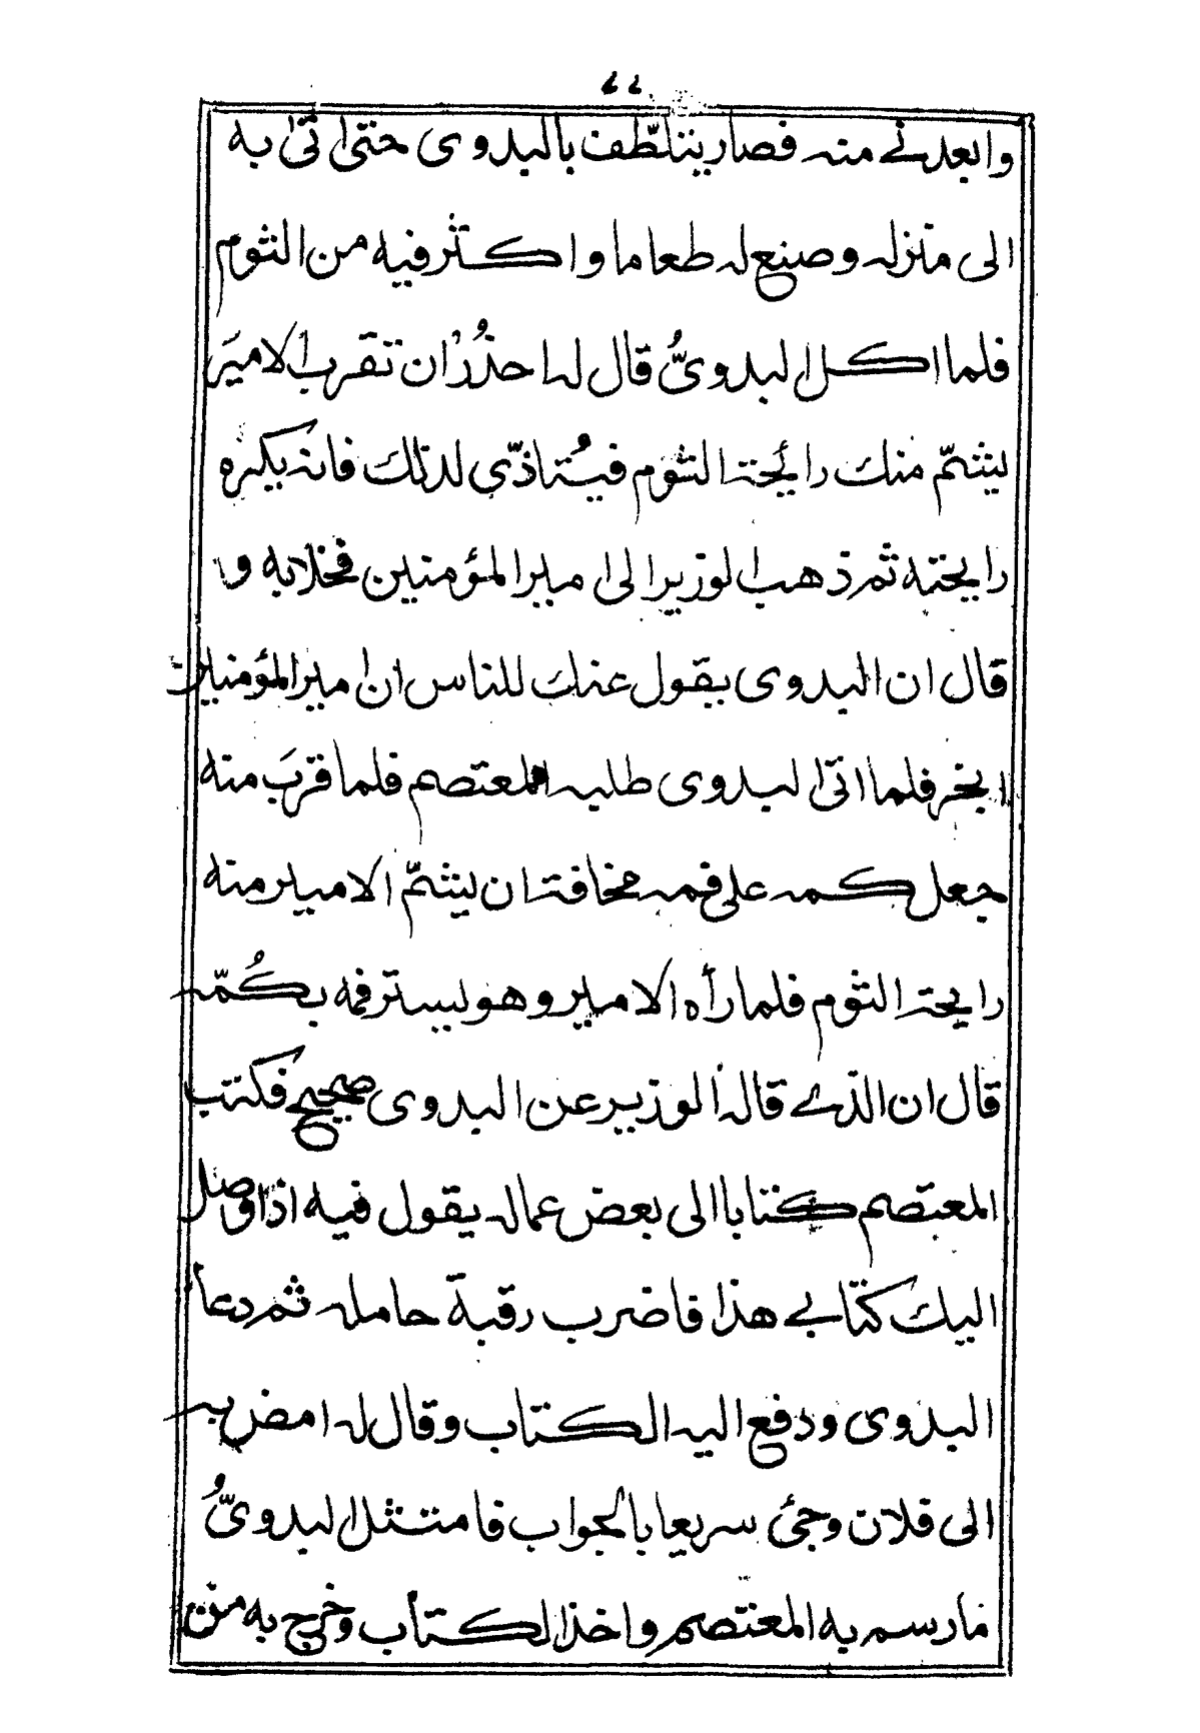 ٤٤
وابعدنے منه فصار يتلطّف بالبدوى حتىٰ اتىٰ به
الى منزله وصنع له طعاما واكثر فيه من الثوم
فلما اكل البدوىُّ قال له احذُرْ ان تقرب الامیرَ
ليشتمّ منك رائحة الثوم فيُتاذّى لذلك فانه يكره
رايحته ثم ذهب الوزير الى امير المؤمنين فخلا به و
قال ان البدوى يقول عنك للناس ان امير المؤمنين
ابخر فلما اتىٰ البدوى طلبه المعتصم فلما قرُبَ منه
جعل كمه على فمه مخافة ان يشتمّ الامير منه
رايحة الثوم فلما رأه الامير وهو يستر فمه بكُمّه
قال ان الذّے قاله الوزير عن البدوى صحيح فكتب
المعتصم كتابا الى بعض عماله يقول فيه اذا وصل
اليك كتابے هذا فاضرب رقبة حامله ثم دعا
البدوى ودفع اليه الكتاب وقال له امض به
الى فلان وجئ سريعا بالجواب فامتثل البدوىُّ
مارسم به المعتصم واخذ الكتاب وخرج به من